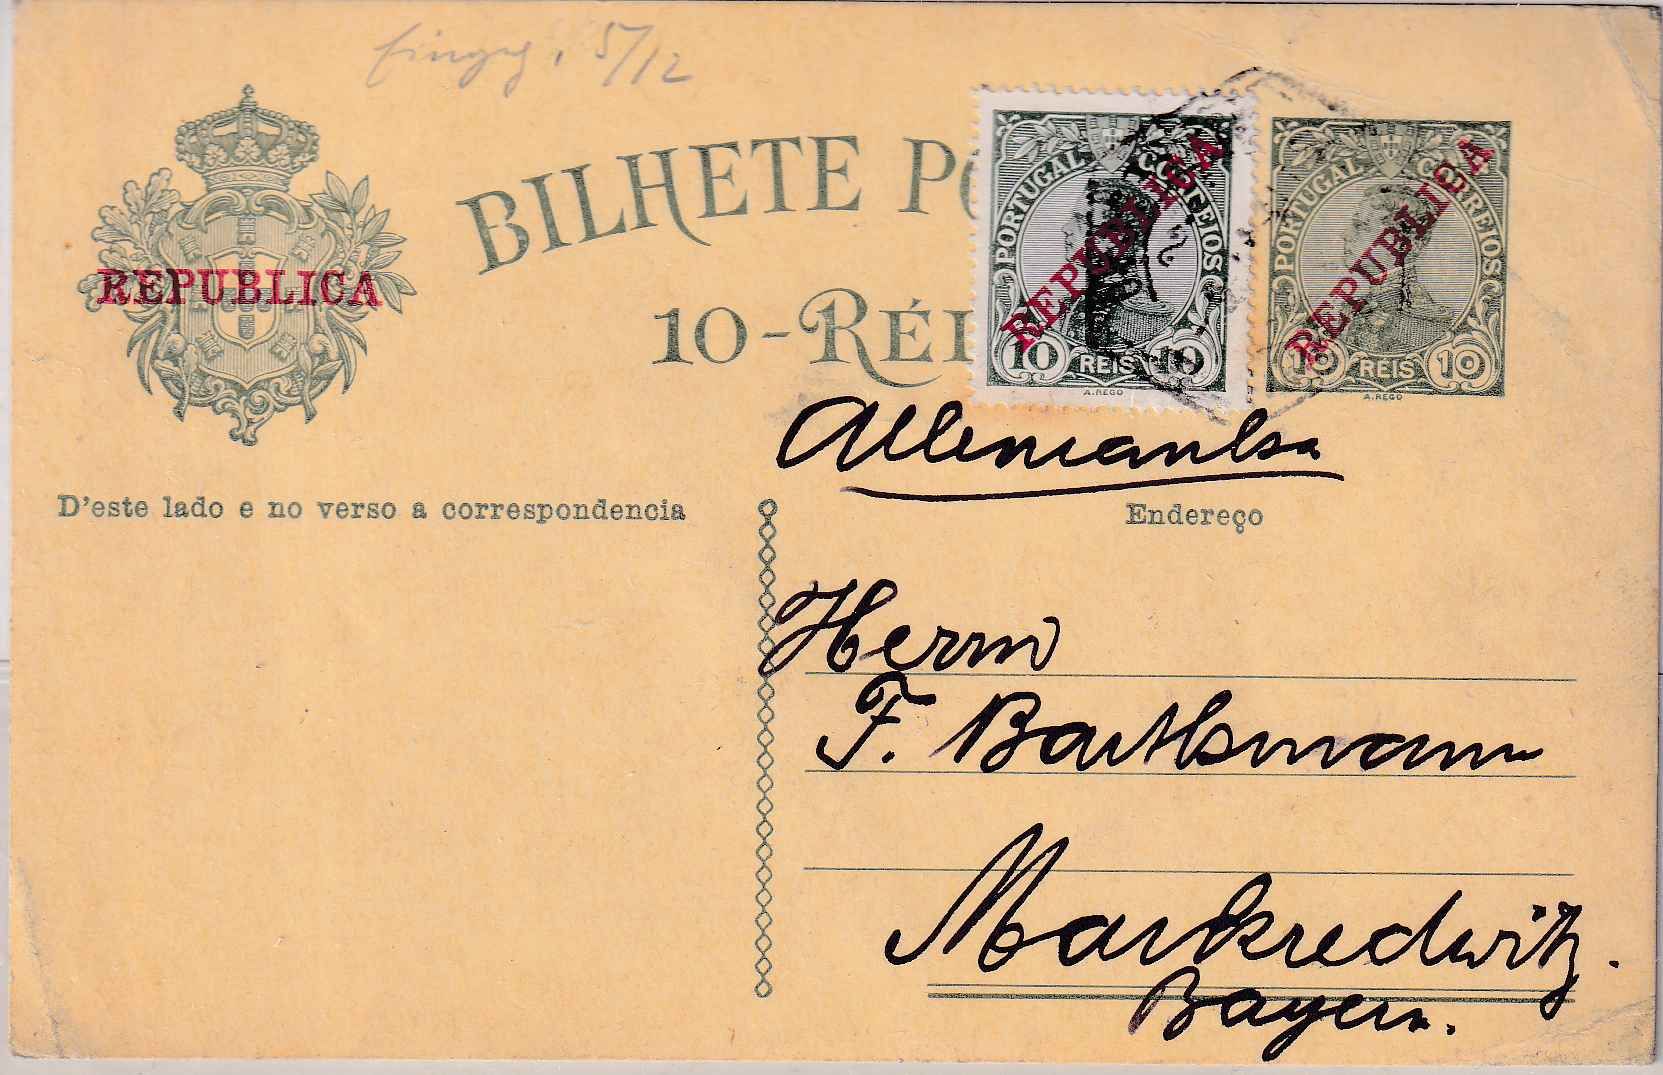 5/12
BILHETE PO
10-RÉI
REPUBLICA
PORTUGAL CORREIOS
REPUBLICA
10 REIS 10
A. REGO
PORTUGAL CORREIOS
REPUBLICA
10 REIS 10
A. REGO
Allemanha
D'este lado e no verso a correspondencia
Endereço
Herrn
F. Barthsmann
Markredwitz.
Bayern.